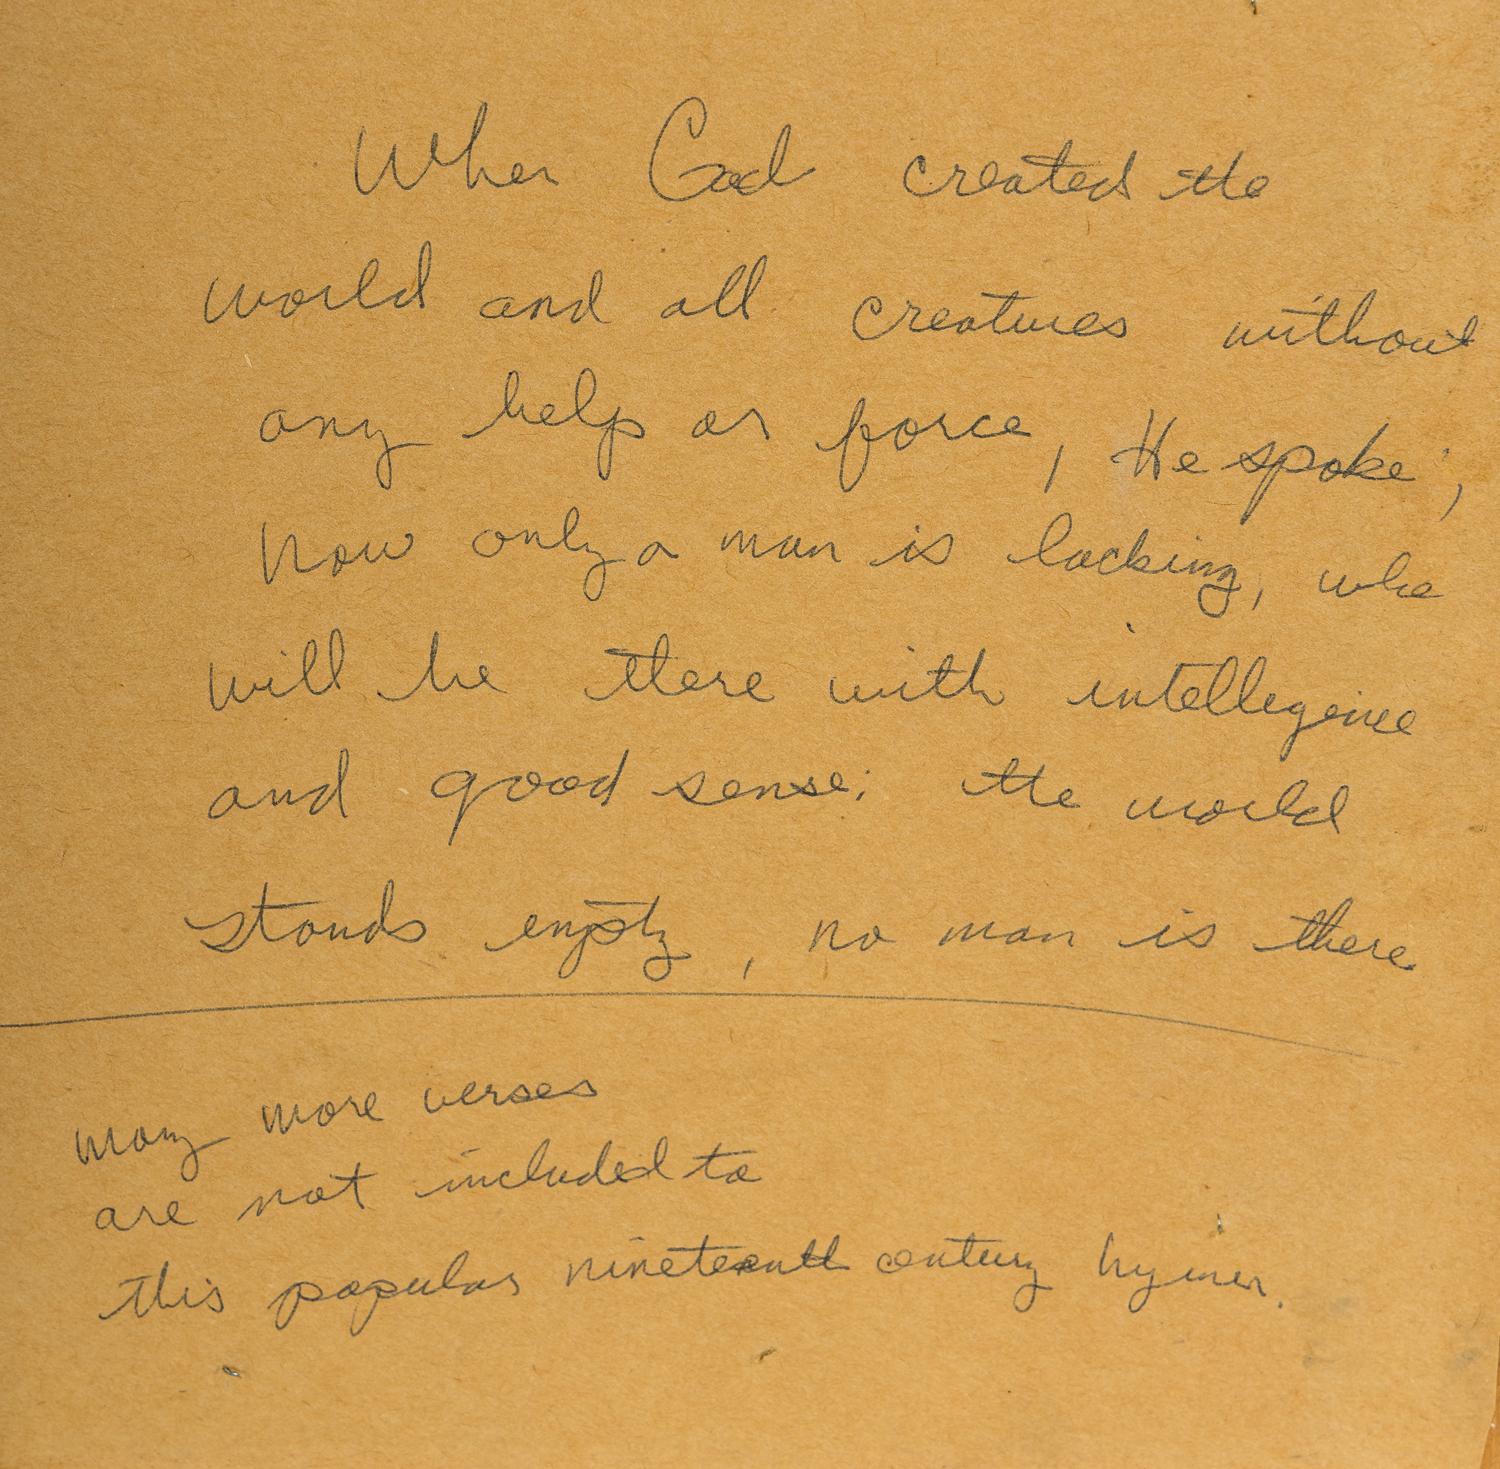 When God created the
world and all creatures without
any help or force, He spoke;
Now only a man is lacking, who
will be there with intellegence
and good sense; the world
stands empty, no man is there
many more verses
are not included to
this popular nineteenth century hymn.